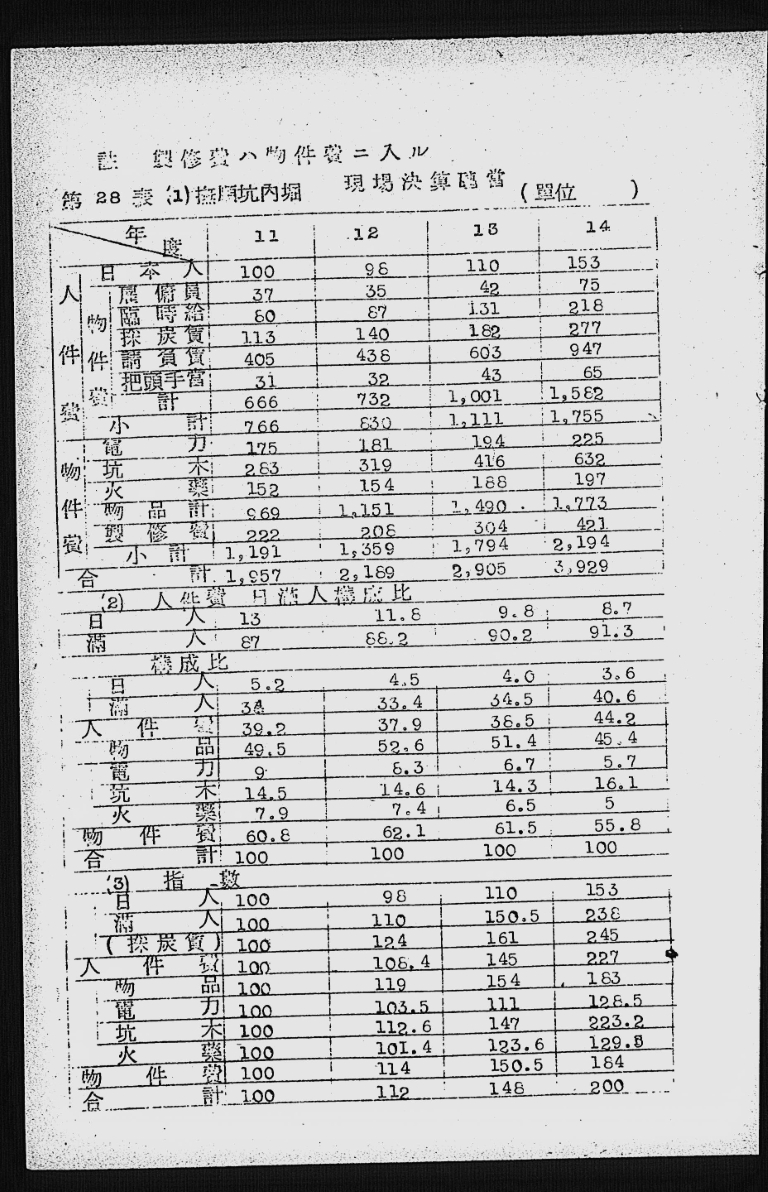 註 製修費ハ物件費ニ入ル
第28表(1)撫順坑內堀 現場決算 當 (單位 )
年度 11 12 13 14
日本人 100 98 110 153
人件費
雇傭員 37 35 42 75
臨時給 80 87 131 218
採炭賃 113 140 182 277
請負賃 405 438 603 947
把頭手當 31 32 43 65
計 666 732 1,001 1,582
小計 766 830 1,111 1,755
物件費
電力 175 181 194 225
坑木 283 319 416 632
火藥 152 154 188 197
物品計 969 1,151 1,490 1,773
製修費 222 208 304 421
小計 1,191 1,359 1,794 2,194
合計 1,957 2,189 2,905 3,929
(2) 人件費 日滿人構成比
日人 13 11.8 9.8 8.7
滿人 87 88.2 90.2 91.3
構成比
日人 5.2 4.5 4.0 3.6
滿人 34 33.4 34.5 40.6
人件費 39.2 37.9 38.5 44.2
物品 49.5 52.6 51.4 45.4
電力 9 8.3 6.7 5.7
坑木 14.5 14.6 14.3 16.1
火藥 7.9 7.4 6.5 5
物件費 60.8 62.1 61.5 55.8
合計 100 100 100 100
(3) 指數
日人 100 98 110 153
滿人 100 110 150.5 238
(採炭賃) 100 124 161 245
人件費 100 108.4 145 227
物品 100 119 154 183
電力 100 103.5 111 128.5
坑木 100 112.6 147 223.2
火藥 100 101.4 123.6 129.5
物件費 100 114 150.5 184
合計 100 112 148 200